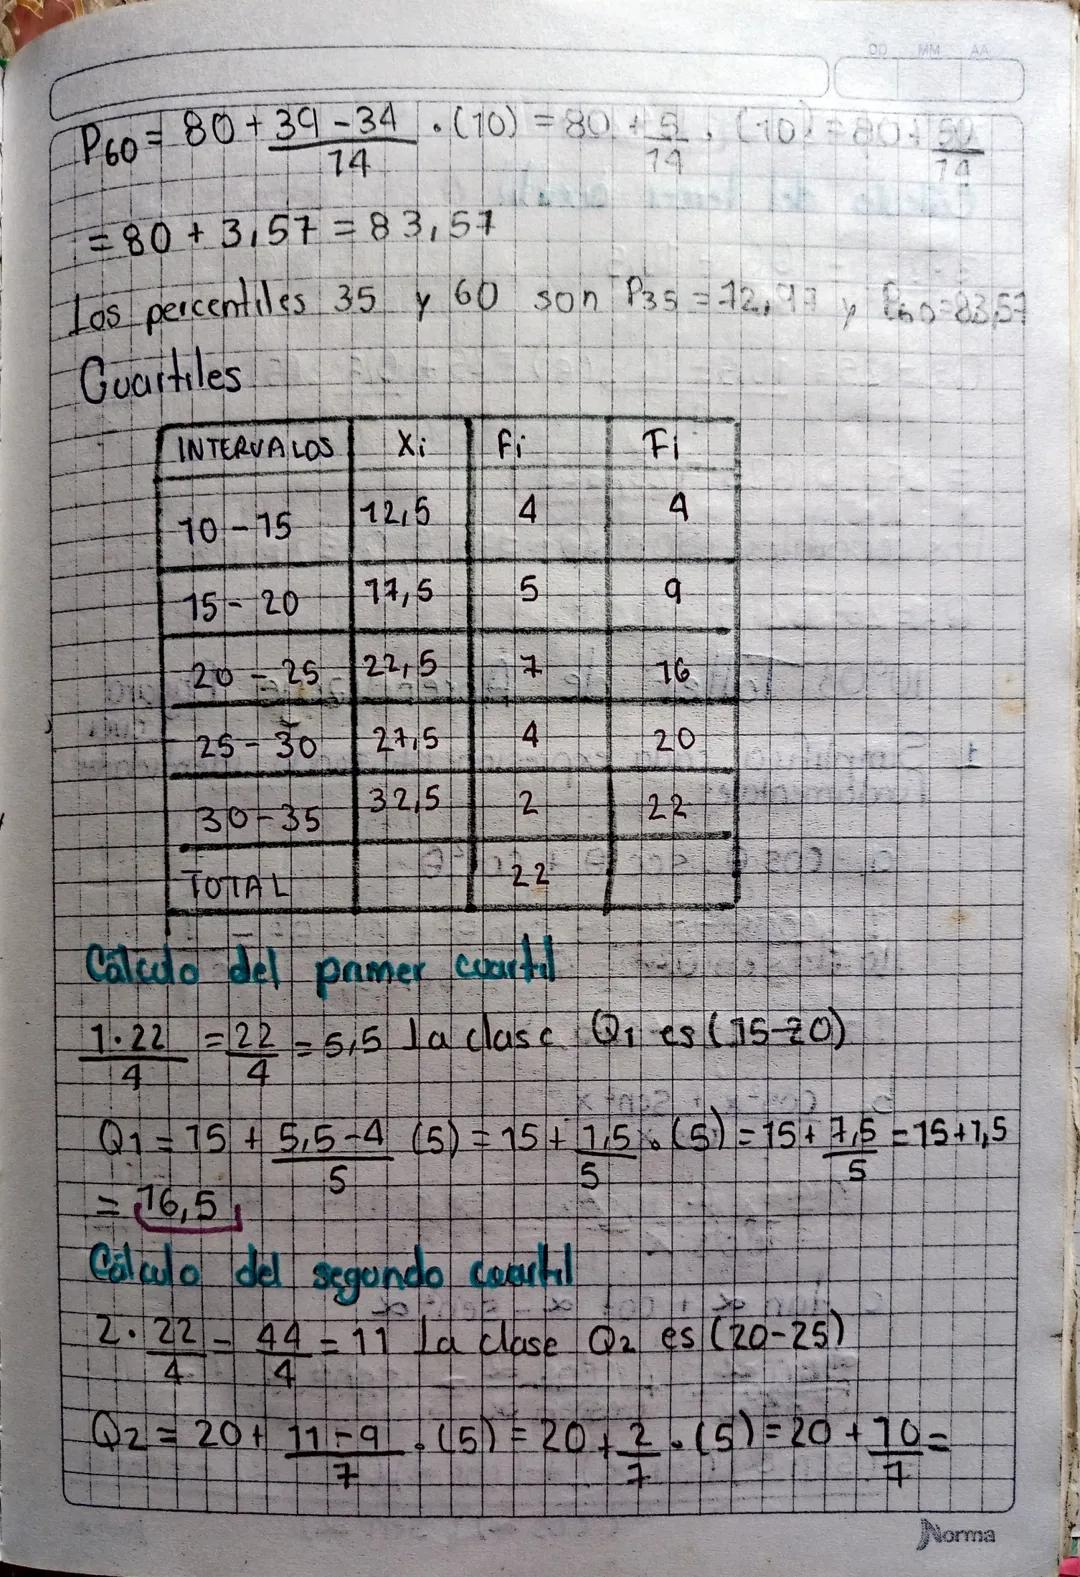 DD MM AA
P60 = 80 + 39 - 34 / 14 . (10) = 80 + 5 / 14 . (10) = 80 + 50 / 14
= 80 + 3,57 = 83,57
Los percentiles 35 y 60 son P35 = 72,97 y P60 = 83,57
Cuartiles
INTERVALOS Xi fi Fi
10 - 15 12,5 4 4
15 - 20 17,5 5 9
20 - 25 22,5 7 16
25 - 30 27,5 4 20
30 - 35 32,5 2 22
TOTAL 22
Cálculo del primer cuartil
1 . 22 / 4 = 22 / 4 = 5,5 La clase Q1 es (15-20)
Q1 = 15 + 5,5 - 4 / 5 (5) = 15 + 1,5 / 5 . (5) = 15 + 7,5 / 5 = 15 + 1,5
= 16,5
Cálculo del segundo cuartil
2 . 22 / 4 = 44 / 4 = 11 La clase Q2 es (20-25)
Q2 = 20 + 11 - 9 / 7 . (5) = 20 + 2 / 7 . (5) = 20 + 10 / 7 =
Norma